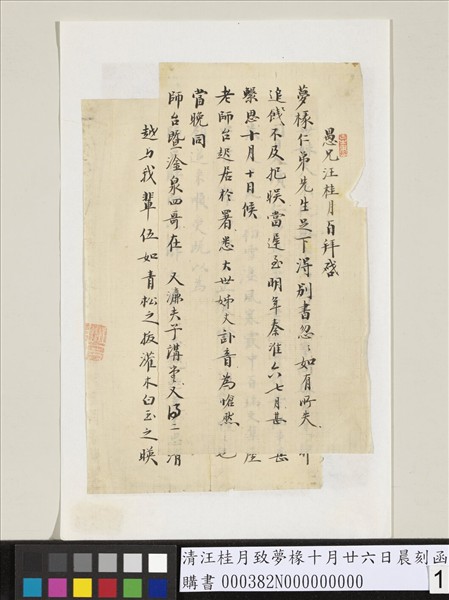 愚兄汪桂月百拜啓
夢椽仁弟先生足下得別書忽忽如有所失
追餞不及把
當遲至明年秦淮六七月
繫思十月十日候
老師台起居於署悉大世姊丈訃音為愴然
當晚同
師台暨淦泉四哥在 又濂夫子講堂又
越与我輩伍如青松之拔灌木白玉之映
清汪桂月致夢椽十月廿六日晨刻函
購書 000382N000000000
1